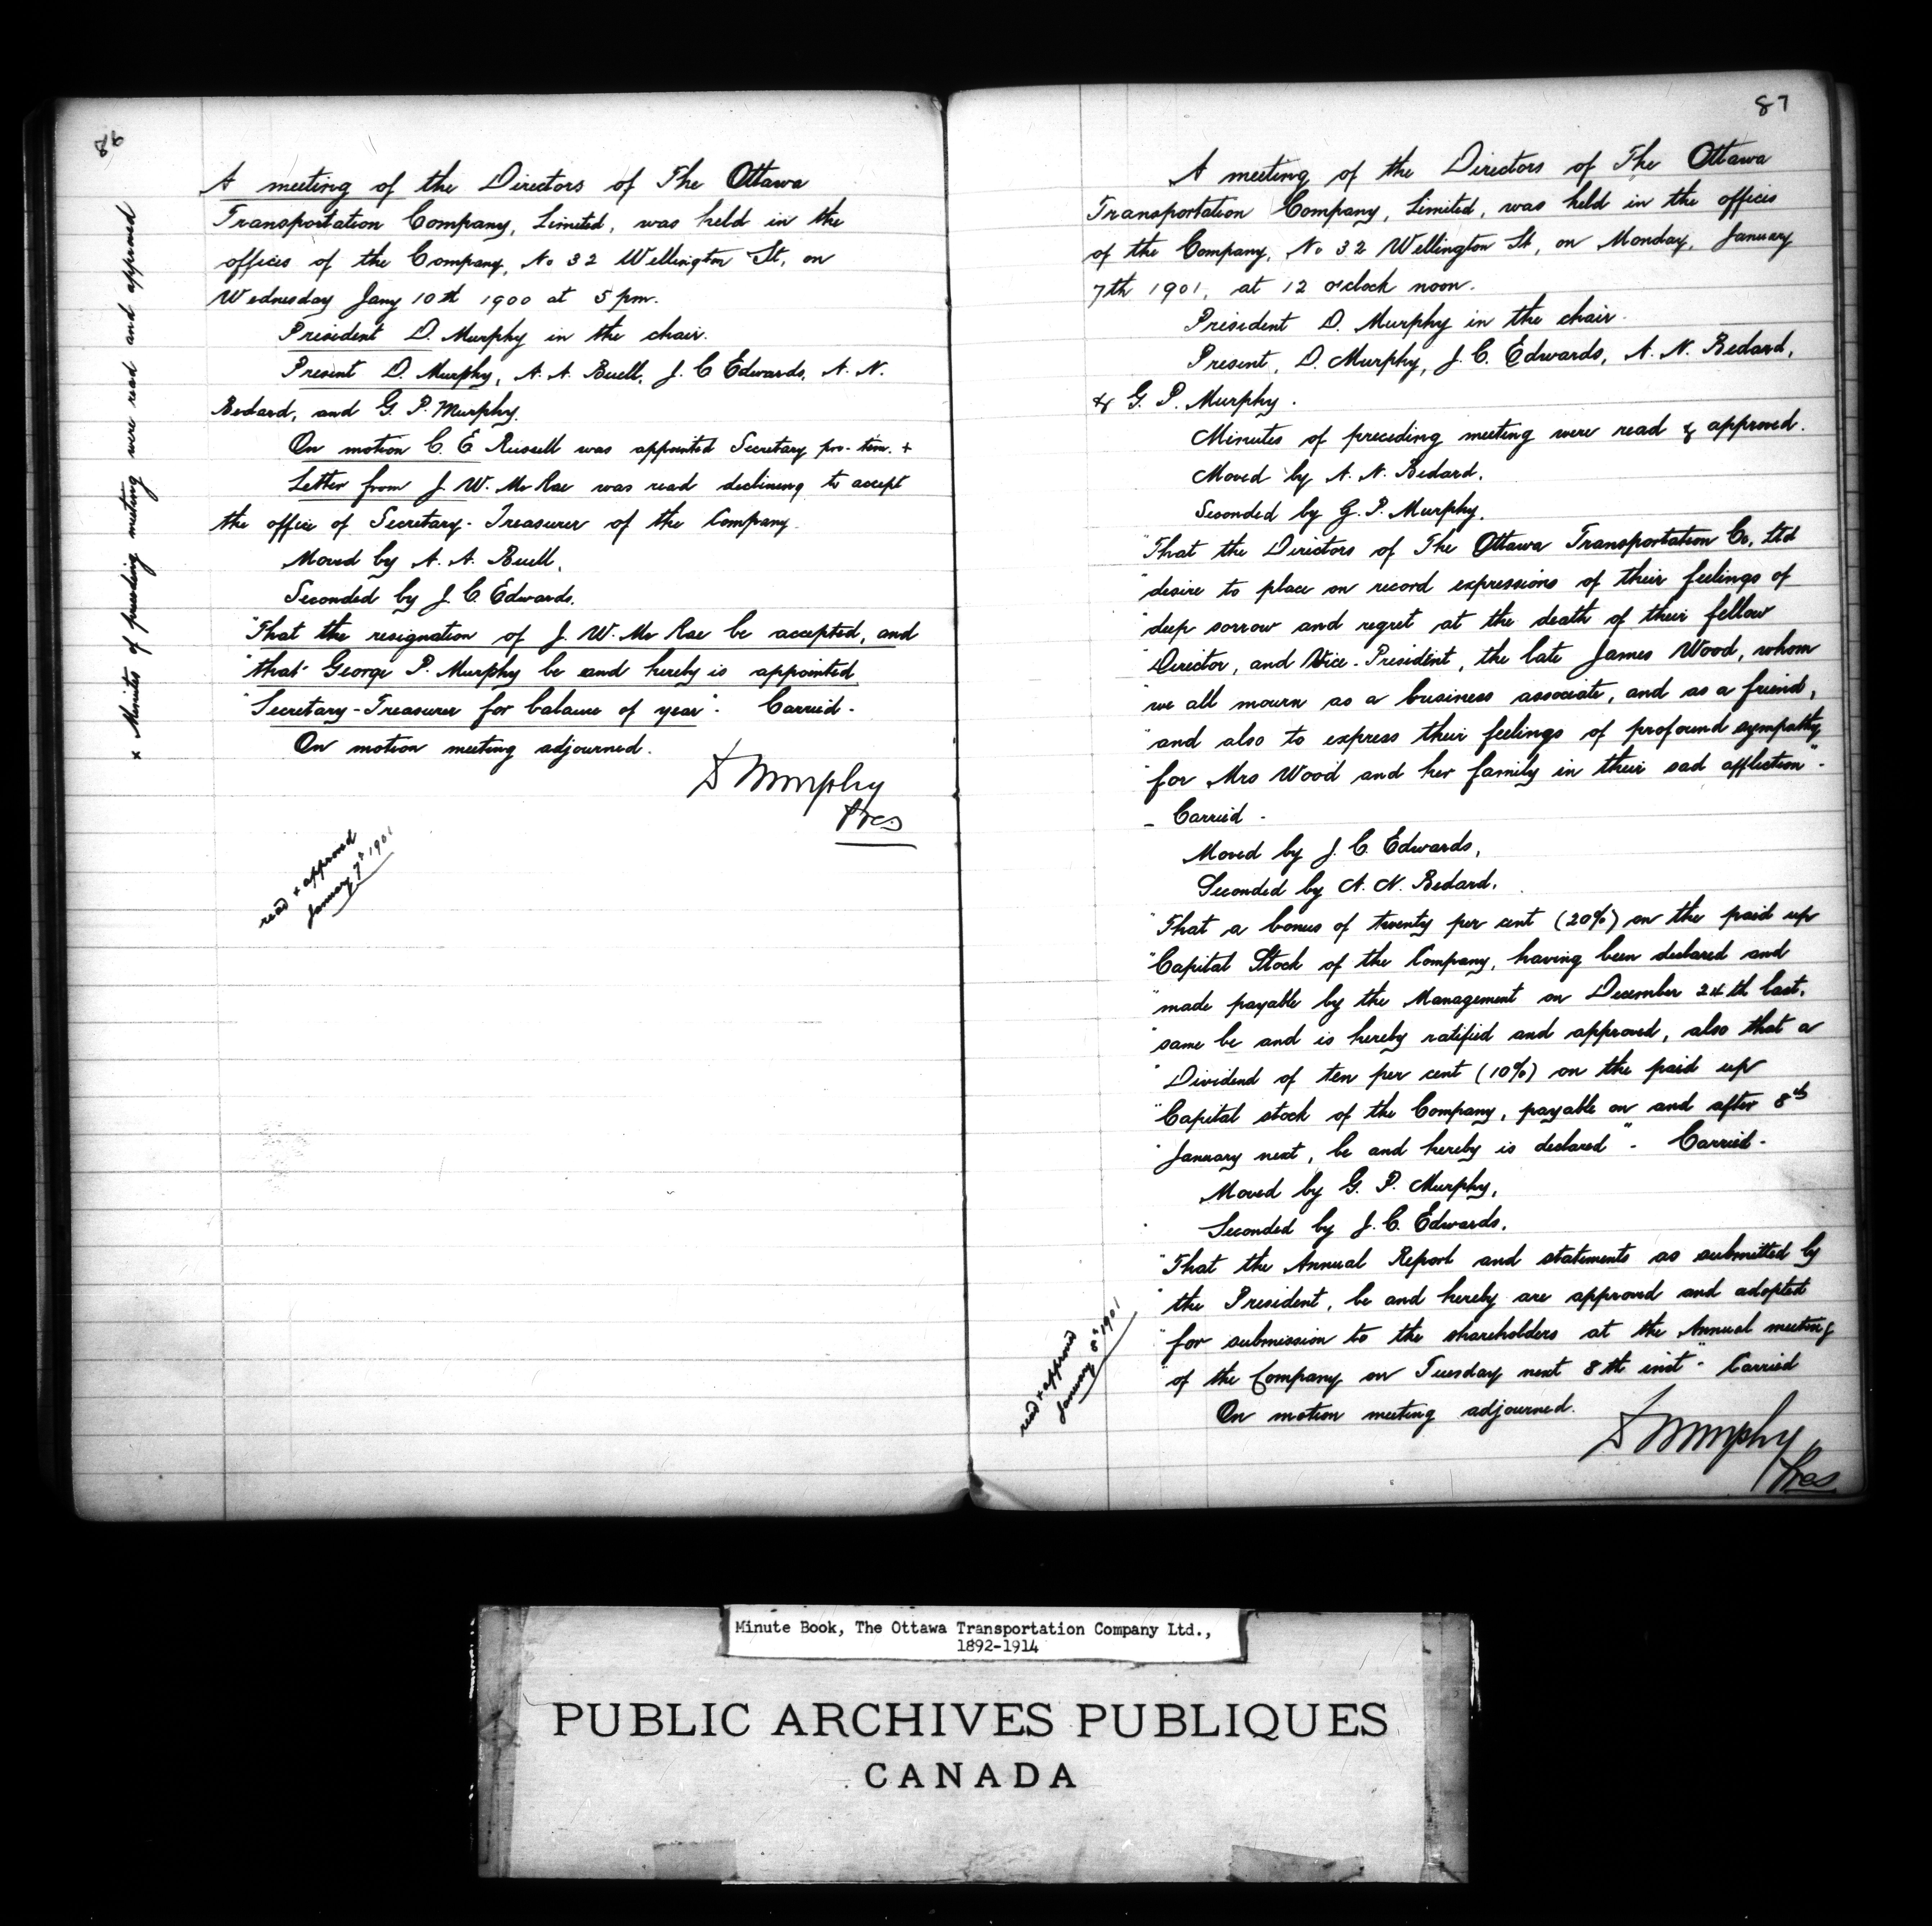 86
A meeting of the Directors of The Ottawa
Transportation Company, Limited, was held in the
offices of the Company, No 32 Wellington St, on
Wednesday Jany 10th 1900 at 5 pm.
President D. Murphy in the chair.
Present D. Murphy, A. A. Buell, J. C Edwards, A. N.
Bedard, and G. P. Murphy.
On motion C. E Russell was appointed Secretary pro-tem. +
Letter from J. W. McRae was read declining to accept
the office of Secretary-Treasurer of the Company.
Moved by A. A. Buell,
Seconded by J. C. Edwards.
"That the resignation of J. W. McRae be accepted, and
"that George P. Murphy be and hereby is appointed
"Secretary-Treasurer for balance of year". Carried.
On motion meeting adjourned.
D Murphy
Pres
read + approved
January 7th 1901
x Minutes of preceding meeting were read and approved
87
A meeting of the Directors of The Ottawa
Transportation Company, Limited, was held in the offices
of the Company, No 32 Wellington St, on Monday, January
7th 1901, at 12 o'clock noon.
President D. Murphy in the chair.
Present, D. Murphy, J. C. Edwards, A. N. Bedard,
& G. P. Murphy.
Minutes of preceding meeting were read & approved.
Moved by A. N. Bedard,
Seconded by G. P. Murphy,
"That the Directors of The Ottawa Transportation Co, Ltd
"desire to place on record expressions of their feelings of
"deep sorrow and regret at the death of their fellow
"Director, and Vice-President, the late James Wood, whom
"we all mourn as a business associate, and as a friend,
"and also to express their feelings of profound sympathy
"for Mrs Wood and her family in their sad affliction".
- Carried.
Moved by J. C. Edwards,
Seconded by A. N. Bedard,
"That a bonus of twenty per cent (20%) on the paid up
"Capital Stock of the Company, having been declared and
"made payable by the Management on December 24th last,
"same be and is hereby ratified and approved, also that a
"Dividend of ten per cent (10%) on the paid up
"Capital stock of the Company, payable on and after 8th
"January next, be and hereby is declared". Carried.
Moved by G. P. Murphy,
Seconded by J. C. Edwards,
"That the Annual Report and statements as submitted by
"the President, be and hereby are approved and adopted
"for submission to the shareholders at the Annual meeting
"of the Company on Tuesday next 8th inst". Carried
On motion meeting adjourned.
D Murphy
Pres
read + approved
January 8th 1901
Minute Book, The Ottawa Transportation Company Ltd.,
1892-1914
PUBLIC ARCHIVES PUBLIQUES
CANADA